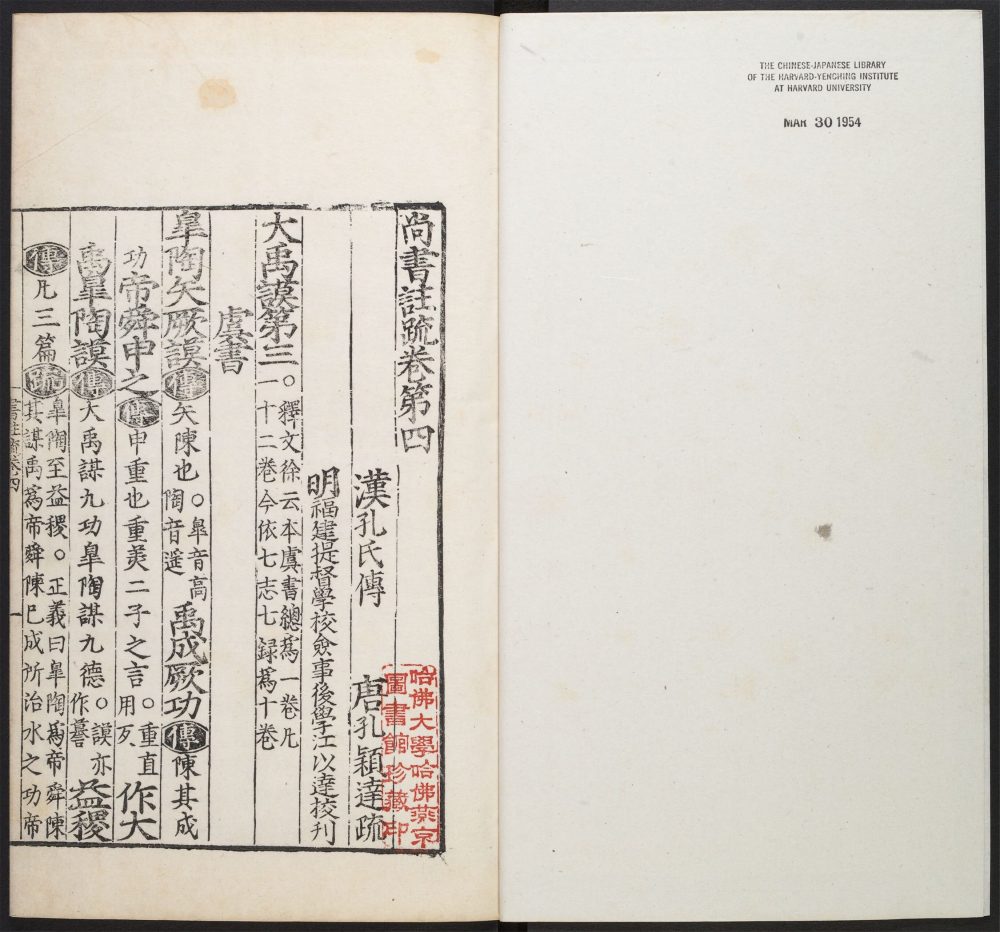 THE CHINESE-JAPANESE LIBRARY
OF THE HARVARD-YENCHING INSTITUTE
AT HARVARD UNIVERSITY
MAR 30 1954
尚書註疏卷第四
哈佛大學哈佛燕京
圖書館珍藏印
漢孔氏傳 唐孔穎達疏
明福建提督學校僉事後學江以達校刊
大禹謨第三〇釋文徐云本虞書總爲一卷凡
一十二卷今依七志七録爲十卷
虞書
皐陶矢厥謨傳矢陳也〇皐音高
陶音遥禹成厥功傳陳其成
功帝舜申之傳申重也重美二子之言〇重直
用反作大
禹皐陶謨傳大禹謀九功皐陶謀九德〇謨亦
作謩益稷
傳凡三篇疏皐陶至益稷〇正義曰皐陶爲帝舜陳
其謀禹爲帝舜陳已成所治水之功帝
書註疏卷四
一